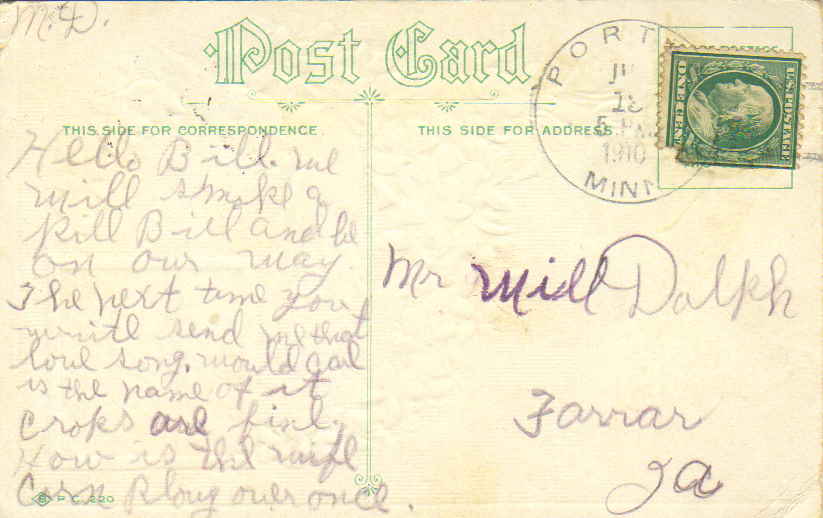 M.D.
Post Card
THIS SIDE FOR CORRESPONDENCE
THIS SIDE FOR ADDRESS
PORT
18
1910
MINN
U.S. POSTAGE
ONE CENT
Hello Bill. we
will smoke a
pill Bill and be
on our way
The next time you
write send me that
love song. would
is the name of it
Crops are fine
How is the wife
Corn Plowg over once.
Mr Will Dolph
Farrar
Ia
P.C. 220